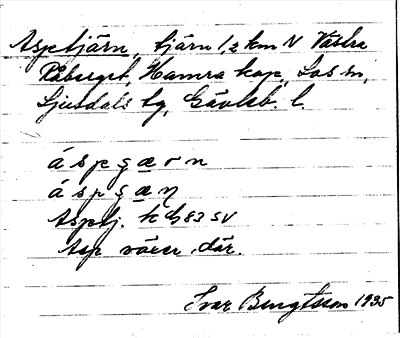 Asptjärn, tjärn 1,2 km N Västra
Råberget, Hamra kap, Los sn,
Ljusdals tg, Gävleb. l.
áspşæ̱rn
áspşæ̱ɳ
Asptj. k bl 83 SV
Asp växer där.
Ivar Bengtsson 1935